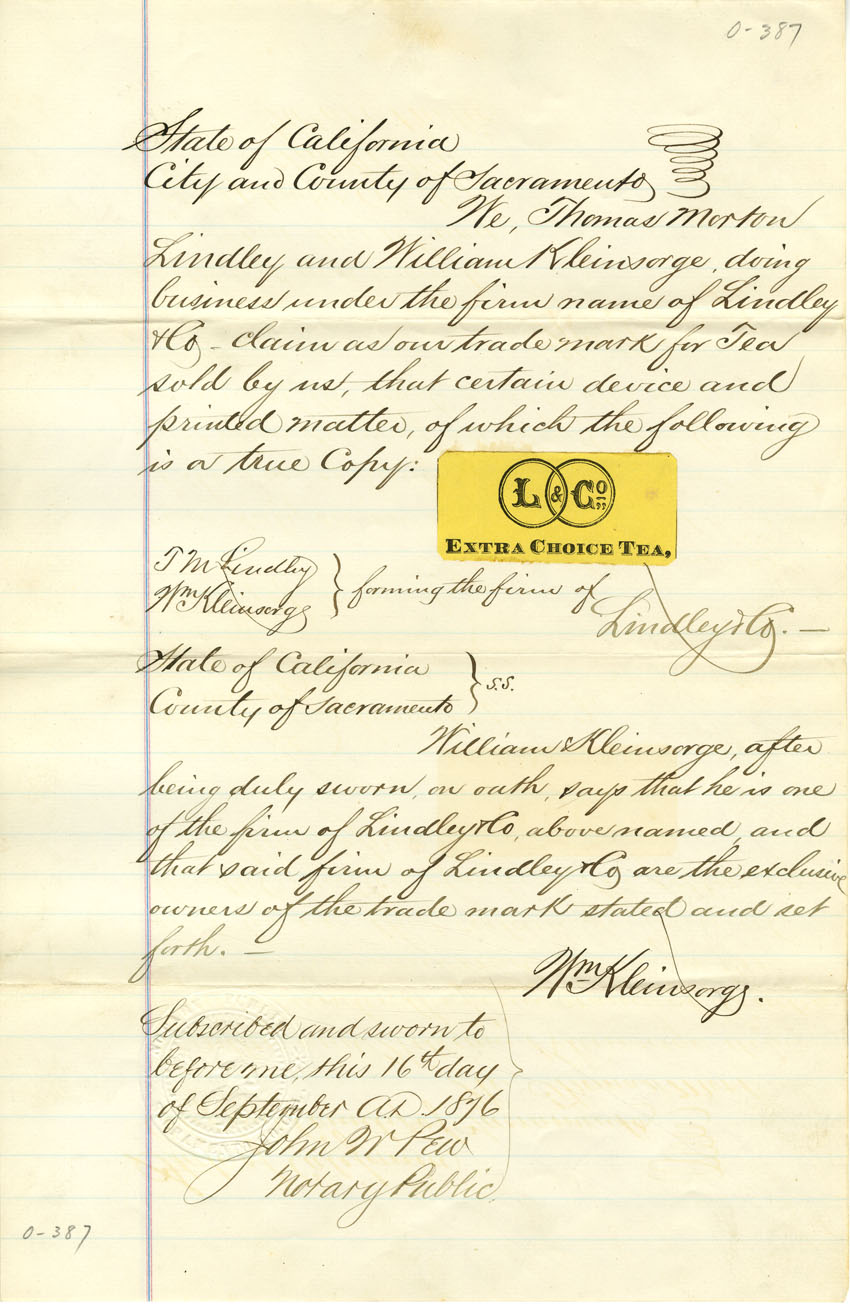 0-387
State of California
City and County of Sacramento
We, Thomas Morton
Lindley and William Kleinsorge, doing
business under the firm name of Lindley
& Co - claim as our trade mark for Tea
sold by us, that certain device and
printed matter, of which the following
is a true Copy:
L & Co.,,
EXTRA CHOICE TEA,
T M Lindley
Wm Kleinsorge
} forming the firm of
Lindley & Co. —
State of California
County of Sacramento
} s.s.
William Kleinsorge, after
being duly sworn, on oath, says that he is one
of the firm of Lindley & Co, above named, and
that said firm of Lindley & Co are the exclusive
owners of the trade mark stated and set
forth. —
Wm Kleinsorge.
Subscribed and sworn to
before me, this 16th day
of September A.D. 1876
John W Pew
Notary Public
0-387